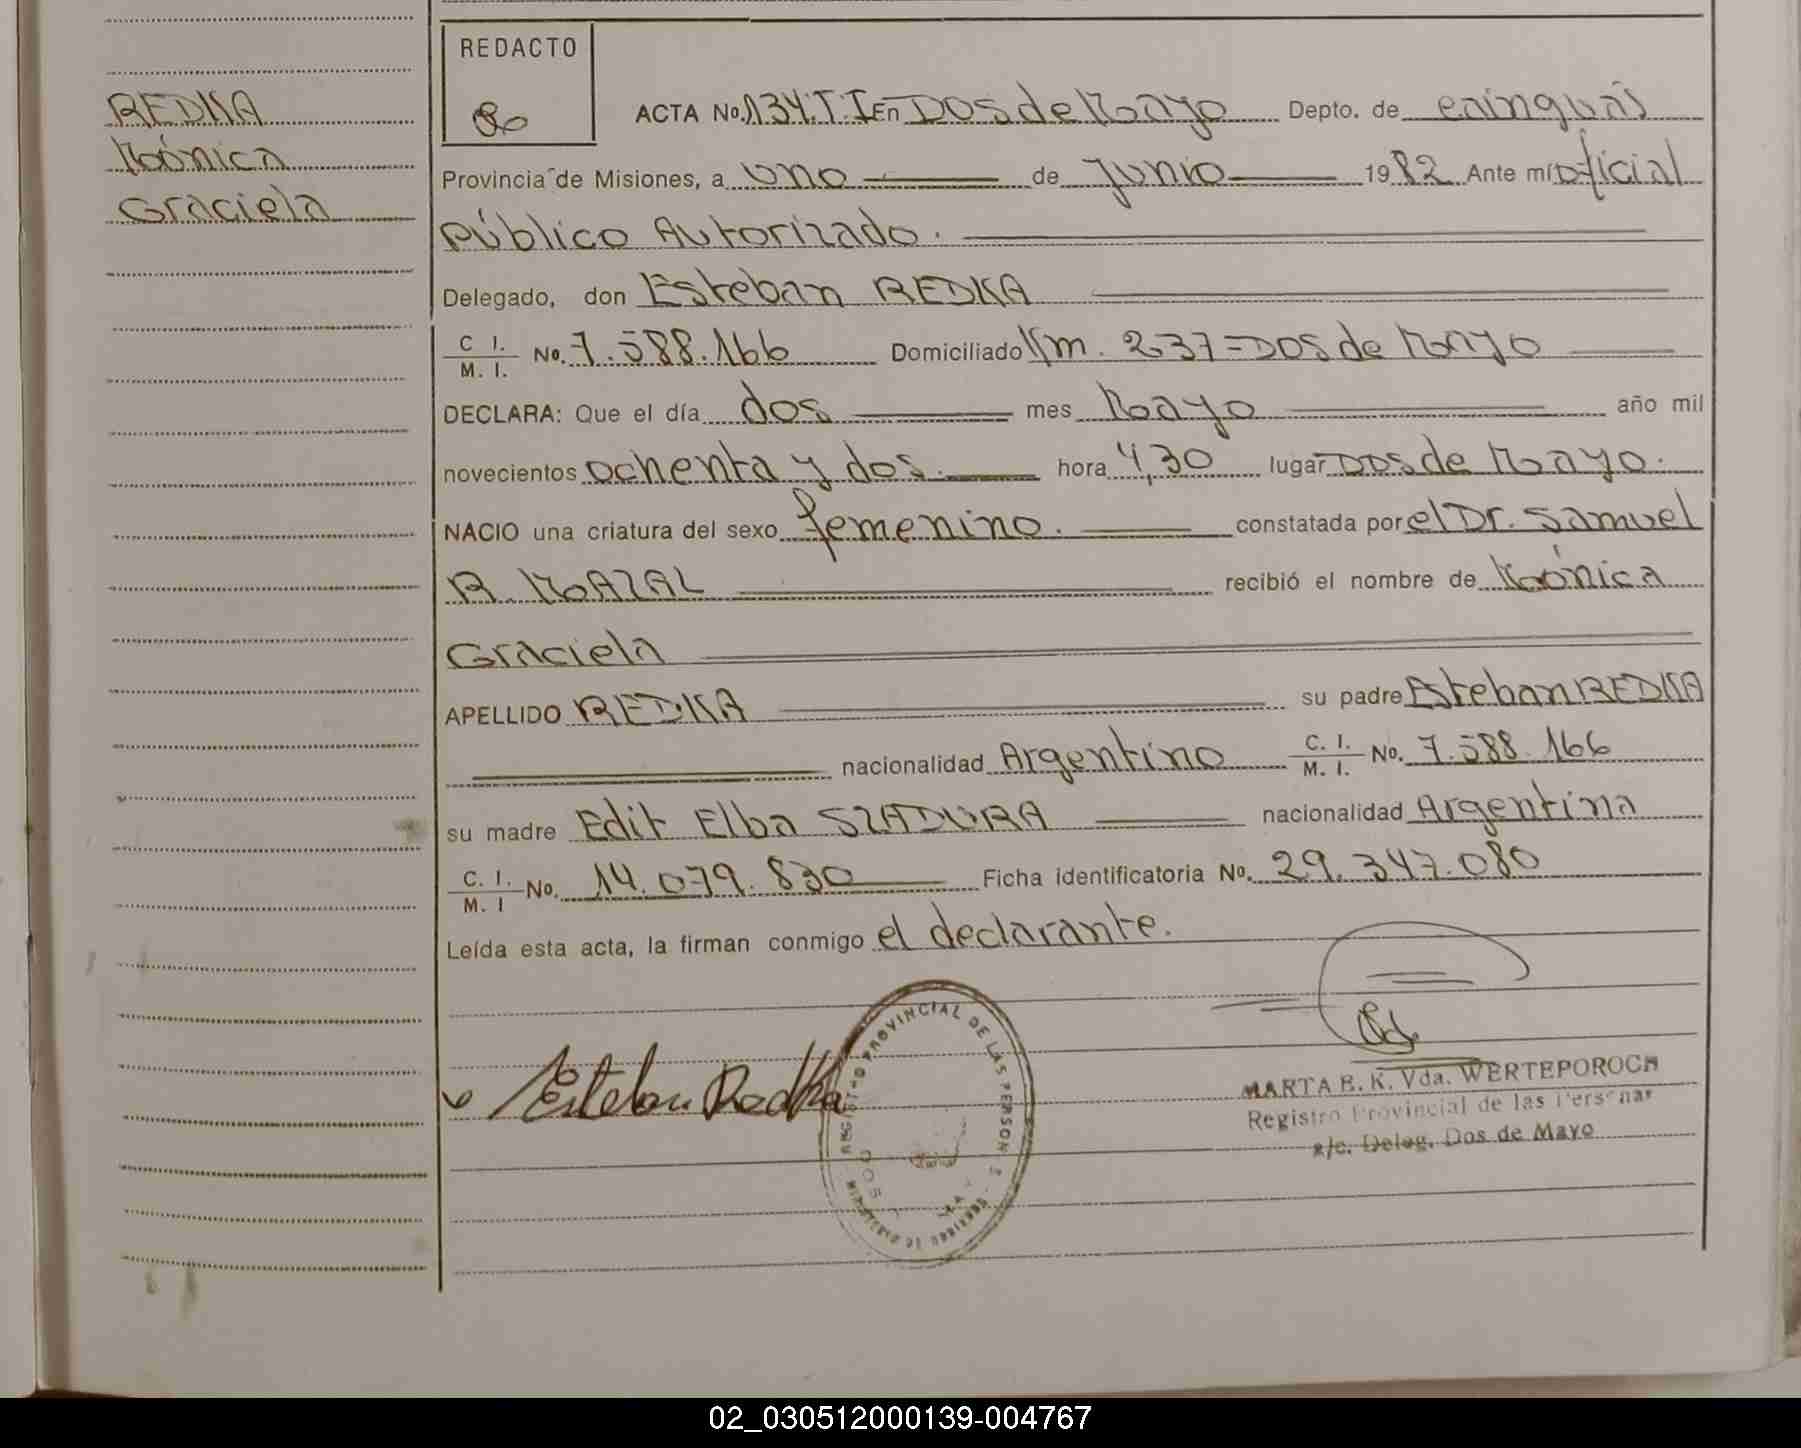 REDACTO
REDKA
Mónica
Graciela
ACTA No. 134.T.I En DOS de Mayo Depto. de Cainguás
Provincia de Misiones, a uno de Junio 1982 Ante mí oficial
Público Autorizado.
Delegado, don Esteban REDKA
C I. M. I. No. 7.588.166 Domiciliado Km. 237=DOS de Mayo
DECLARA: Que el día dos mes Mayo año mil
novecientos ochenta y dos. hora 4,30 lugar DOS de Mayo.
NACIO una criatura del sexo femenino. constatada por el Dr. Samuel
R. MOAZAL recibió el nombre de Mónica
Graciela
APELLIDO REDKA su padre Esteban REDKA
nacionalidad Argentino C. I. M. I. No. 7.588.166
su madre Edit Elba SZADURA nacionalidad Argentina
C. I. M. I No. 14.079.830 Ficha identificatoria No. 29.347.080
Leída esta acta, la firman conmigo el declarante.
Esteban Redka
REGISTRO PROVINCIAL DE LAS PERSONAS
DOS
MARTA E. K. Vda. WERTEPOROCH
Registro Provincial de las Personas
a/c. Deleg. Dos de Mayo
02_030512000139-004767